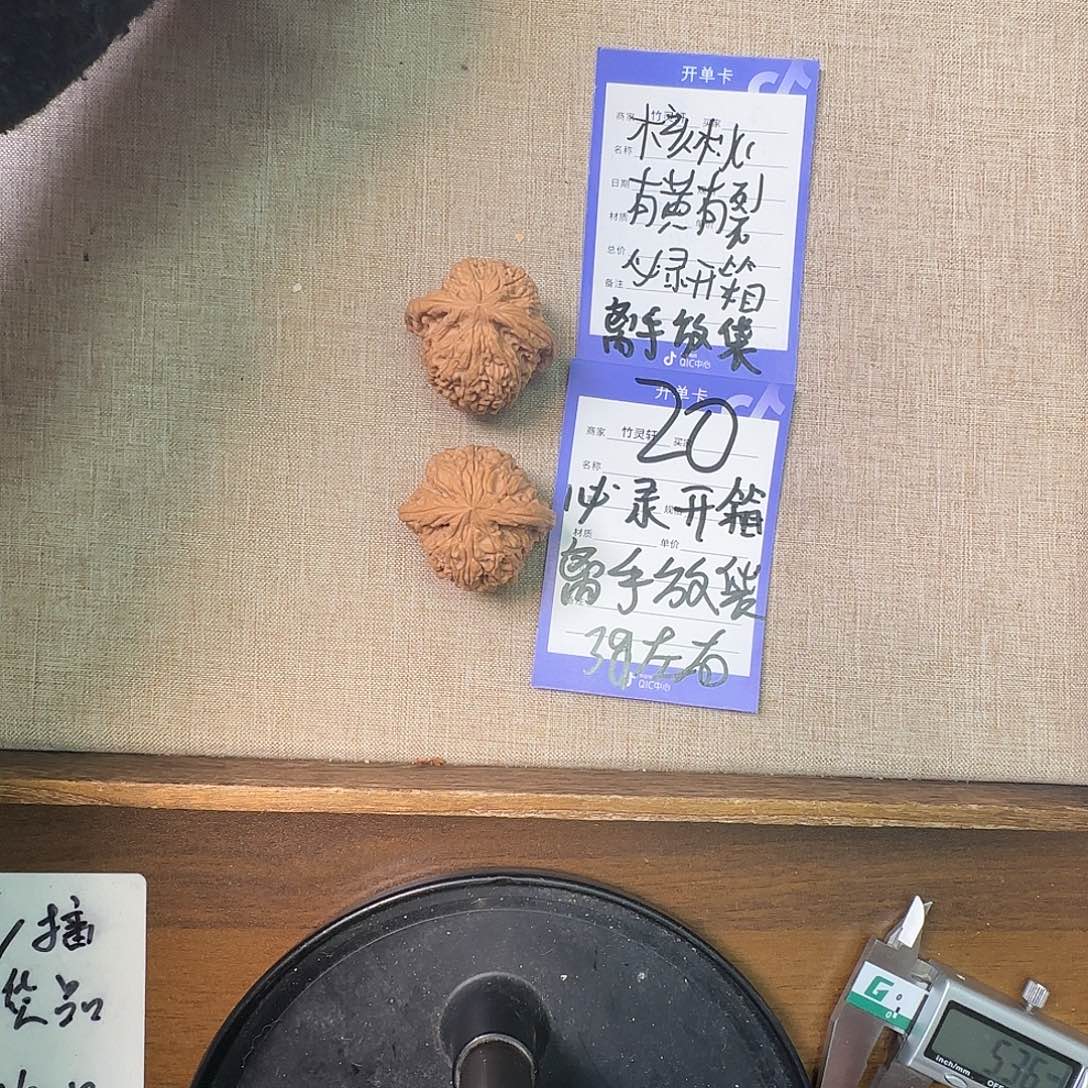 开单卡
商家 竹灵轩 买家
名称
核桃
日期
有黄有裂
材质
总价
必录开箱
备注
离手放袋
QIC中心
开单卡
20
商家 竹灵轩 买家
名称
必录开箱
规格
材质
单价
离手放袋
39左右
QIC中心
G
inch/mm
OFF
5.36